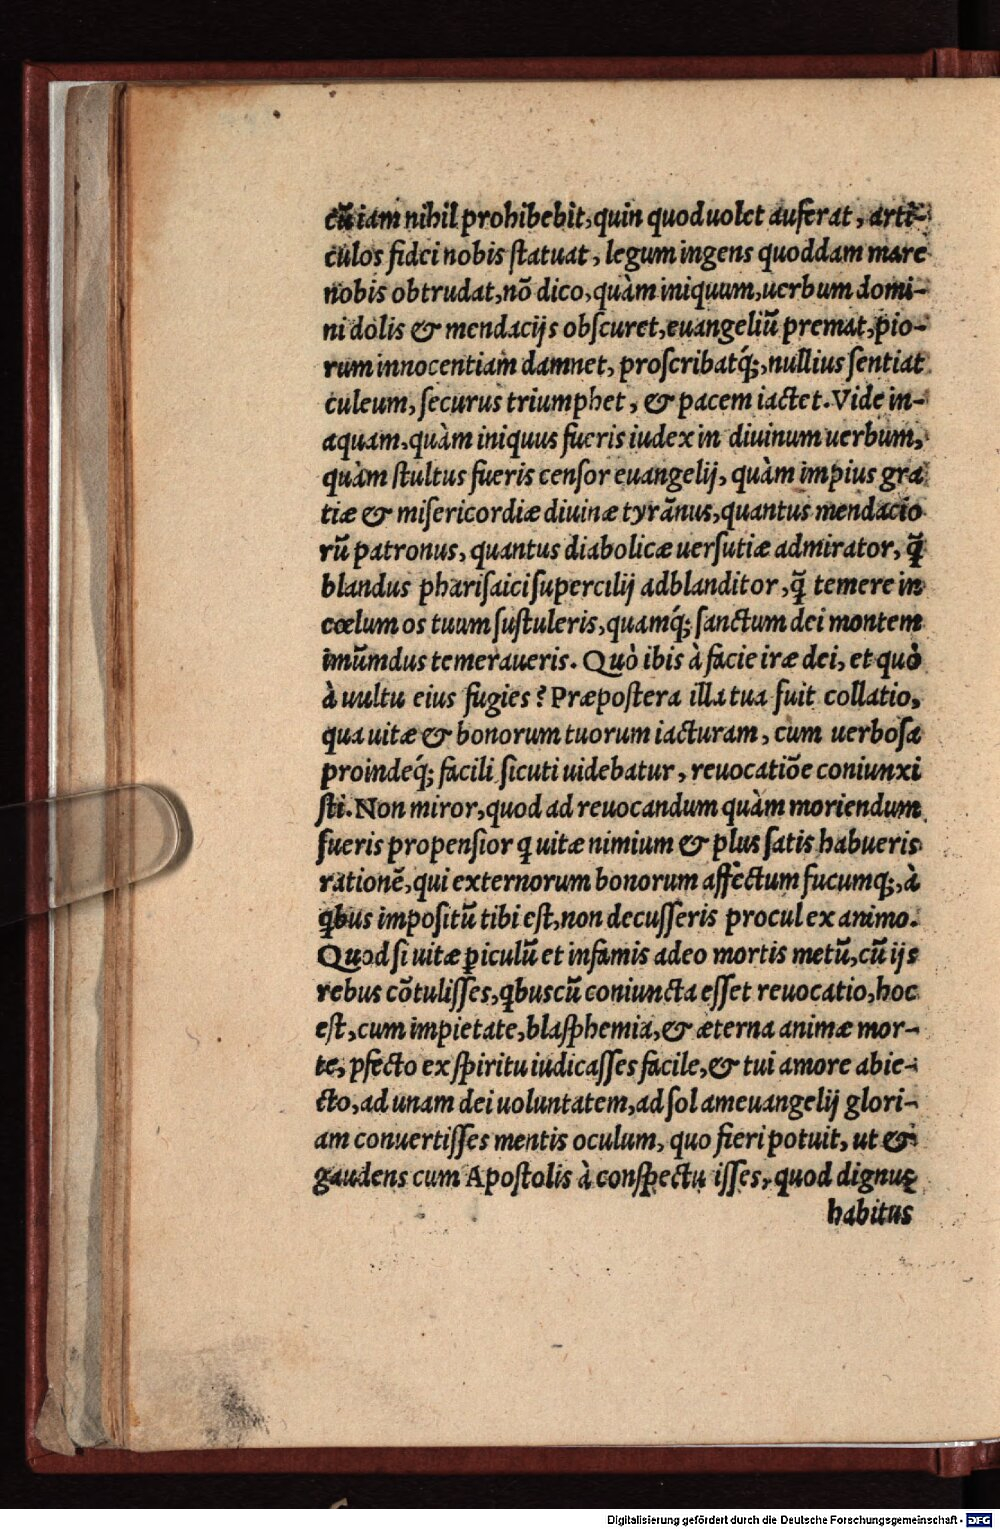 cũ iam nihil prohibebit, quin quod uolet auferat, arti-
culos fidei nobis ſtatuat, legum ingens quoddam mare
nobis obtrudat, nõ dico, quàm iniquum, uerbum domi-
ni dolis & mendacijs obſcuret, euangeliũ premat, pio-
rum innocentiam damnet, proſcribatq́;, nullius ſentiat
culeum, ſecurus triumphet, & pacem iactet. Vide in-
aquam, quàm iniquus fueris iudex in diuinum uerbum,
quàm ſtultus fueris cenſor euangelij, quàm impius gra
tiæ & miſericordiæ diuinæ tyrãnus, quantus mendacio
rũ patronus, quantus diabolicæ uerſutiæ admirator, q̃
blandus phariſaici ſupercilij adblanditor, q̃ temere in
cœlum os tuum ſuſtuleris, quamq́; ſanctum dei montem
imũmdus temeraueris. Quò ibis à facie iræ dei, et quò
à uultu eius fugies? Præpoſtera illa tua fuit collatio,
qua uitæ & bonorum tuorum iacturam, cum uerboſa
proindeq́; facili ſicuti uidebatur, reuocatiõe coniunxi
ſti. Non miror, quod ad reuocandum quàm moriendum
fueris propenſior q uitæ nimium & plus ſatis habueris
rationẽ, qui externorum bonorum affèctum fucumq;, à
qbus impoſitũ tibi eſt, non decuſſeris procul ex animo.
Quod ſi uitæ ꝑiculũ et infamis adeo mortis metũ, cũ ijs
rebus cõtuliſſes, qbuscũ coniuncta eſſet reuocatio, hoc
eſt, cum impietate, blaſphemia, & æterna animæ mor-
te, ꝓfecto ex ſpiritu iudicaſſes facile, & tui amore abie-
cto, ad unam dei uoluntatem, ad ſolam euangelij glori-
am conuertiſſes mentis oculum, quo fieri potuit, ut &
gaudens cum Apoſtolis à conſpectu iſſes, quod dignus
habitus
Digitalisierung gefördert durch die Deutsche Forschungsgemeinschaft - DFG